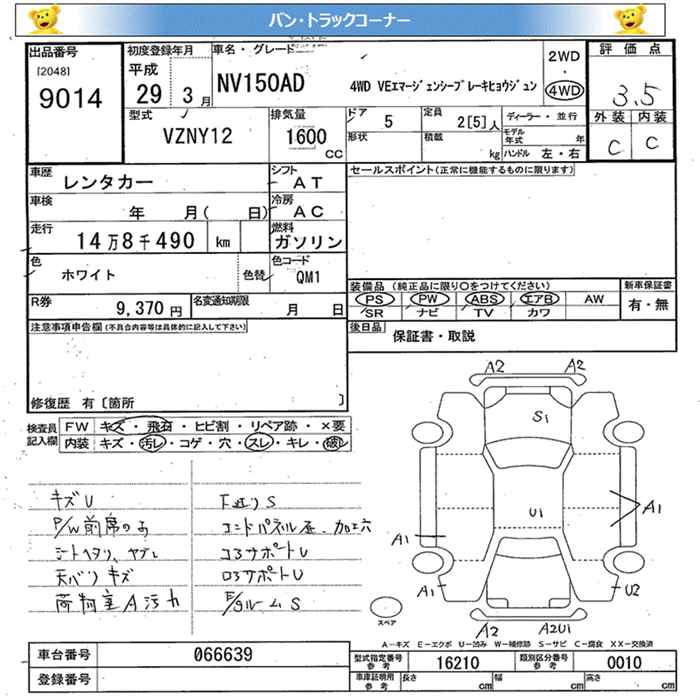 バン・トラックコーナー
出品番号 [2048] 9014
初度登録年月 平成 29 3月
車名・グレード NV150AD 4WD VEエマージェンシーブレーキヒョウジュン
2WD ・ 4WD
評価点 3.5
外装 内装 C C
型式 VZNY12
排気量 1600 CC
ドア 5
定員 2[5]人
ディーラー・並行
形状
積載 kg
モデル年式 年
ハンドル 左・右
車歴 レンタカー
シフト AT
セールスポイント(正常に機能するものに限ります)
車検 年 月( 日)
冷房 AC
走行 14万8千490 km
燃料 ガソリン
色 ホワイト 色替
色コード QM1
装備品 (純正品に限り〇をつけてください)
新車保証書 有・無
PS PW ABS エアB AW
SR ナビ TV カワ
R券 9,370円
名変通知期限 月 日
後日品 保証書・取説
注意事項申告欄(不具合内容等は具体的に記入して下さい)
修復歴 有〔箇所 〕
検査員記入欄
FW キズ・飛石・ヒビ割・リペア跡・×要
内装 キズ・汚レ・コゲ・穴・スレ・キレ・破レ
キズU
P/W前席のみ
シートヘタリ、ヤブレ
天バリキズ
荷物室A汚れ
下廻りS
コンドパネル歪、加工穴
コアサポートU
ロアサポートU
E/gルームS
A2 A2
S1
U1
A1
A1
A1
U2
A2 A2U1
スペア
A-キズ E-エクボ U-凹み W-補修跡 S-サビ C-腐食 XX-交換済
車台番号 066639
型式指定番号 参考 16210
類別区分番号 参考 0010
登録番号
車庫証明用 参考 長さ cm 幅 cm 高さ cm